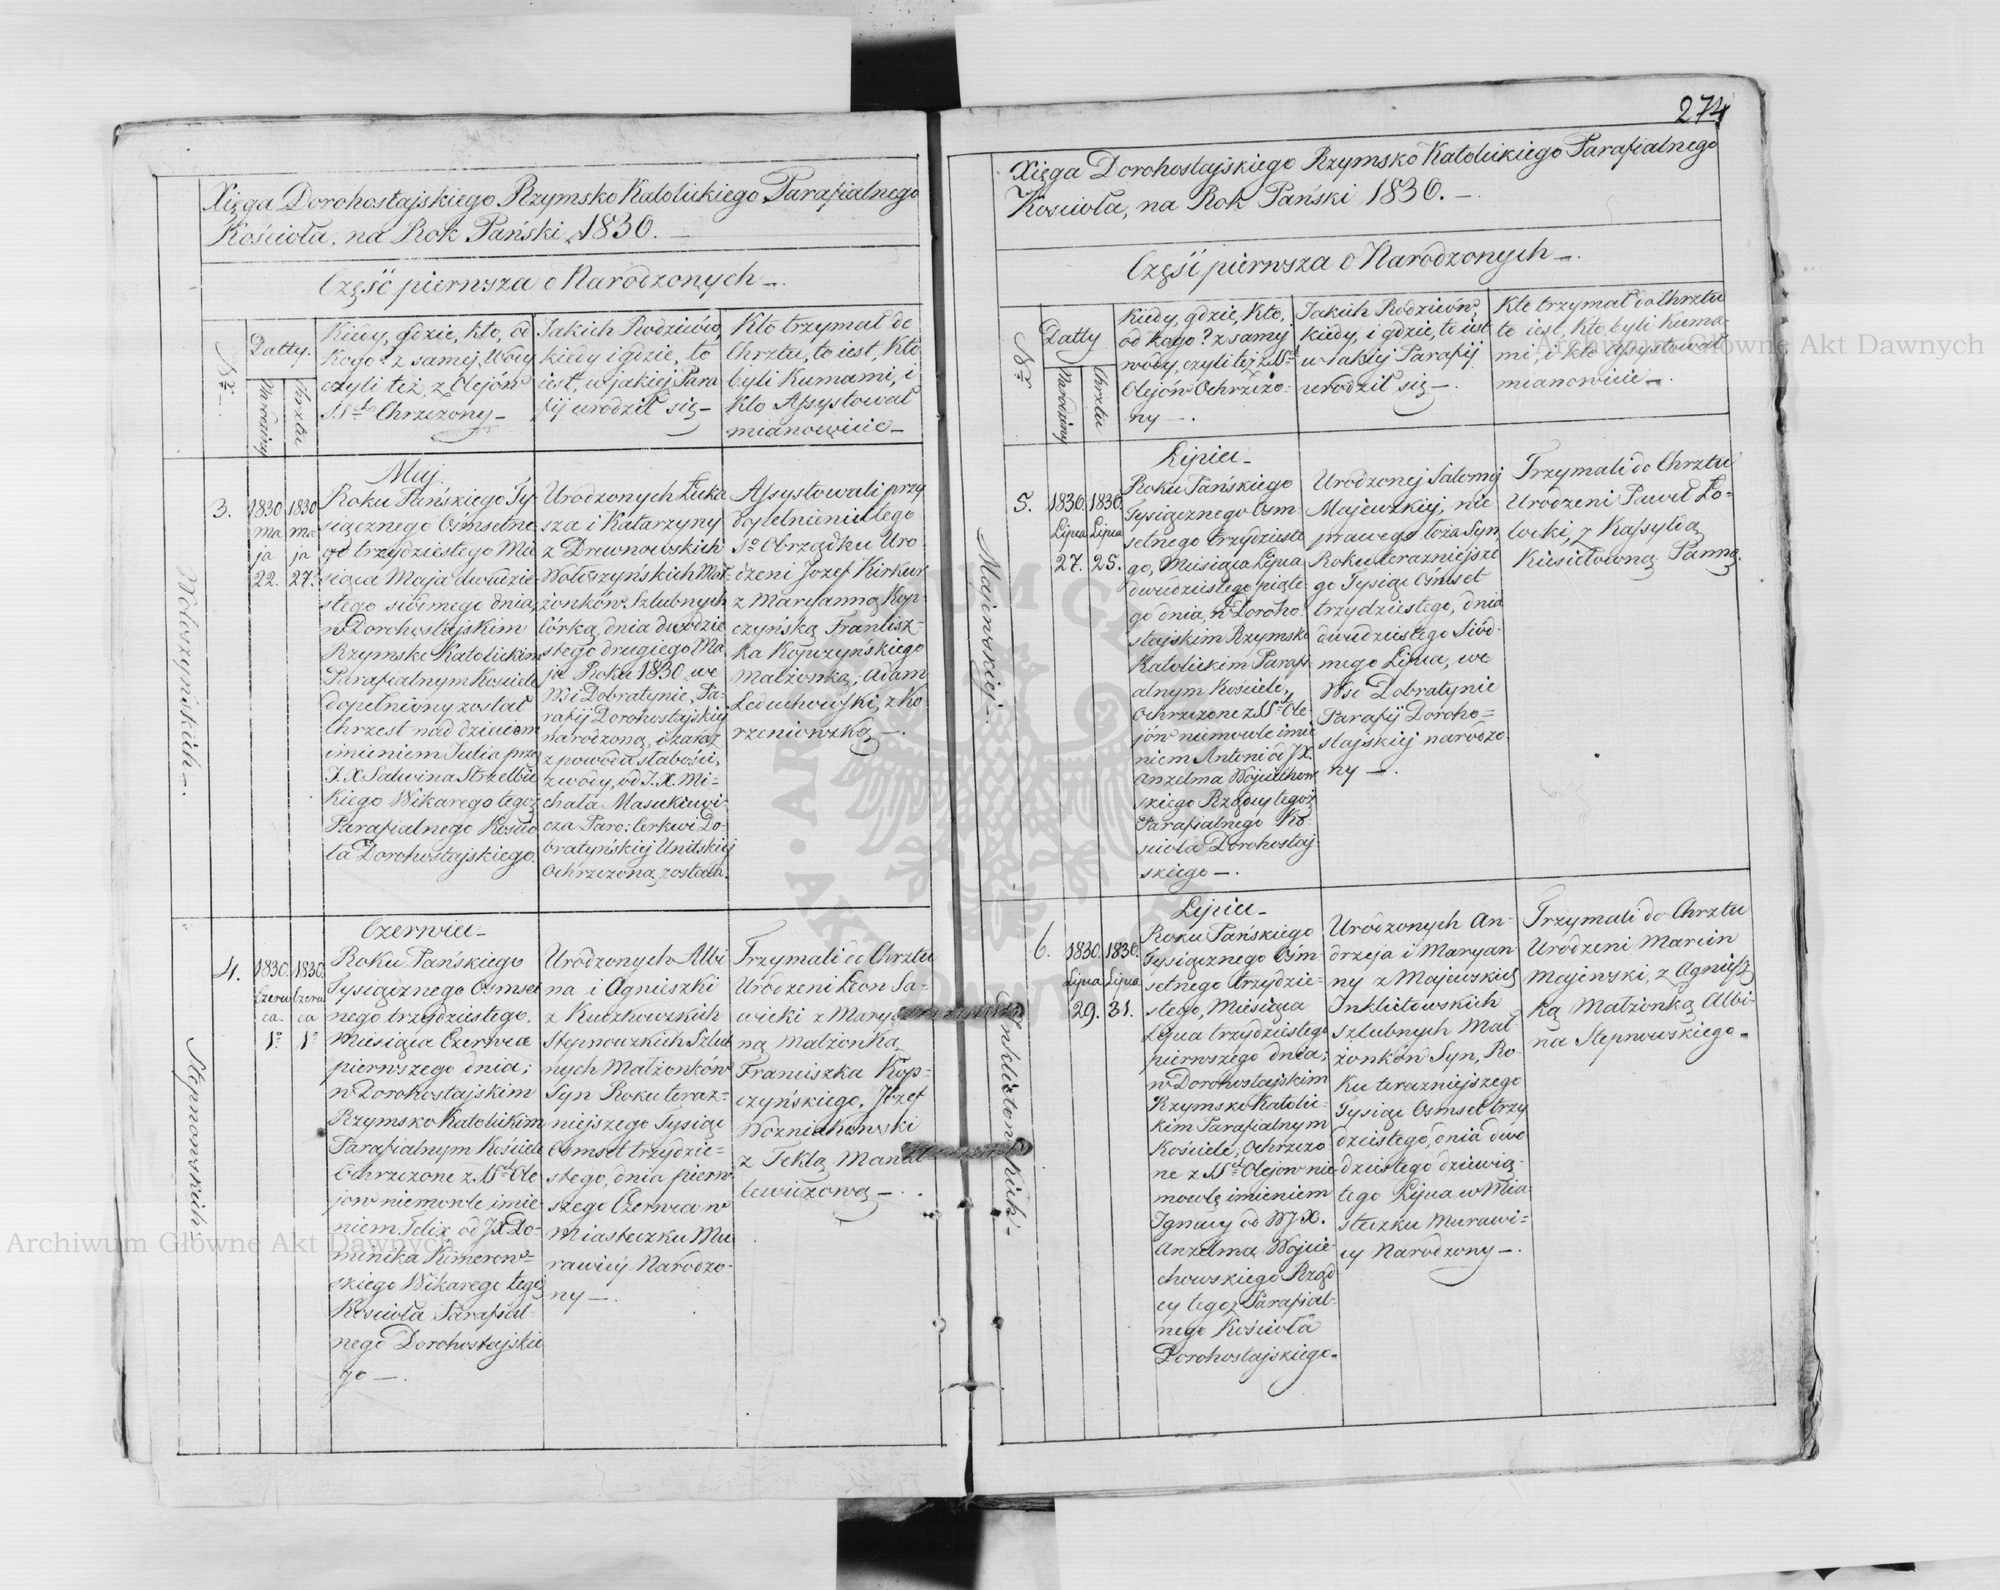 274
Xięga Dorohostajskiego Rzymsko Katolickiego Parafialnego
Kościoła, na Rok Pański 1830. —
Część pierwsza o Narodzonych —.
Nr
Datty.
Narodziny
Chrztu
Kiedy, gdzie, kto, od
Kogo? z samej Wody
czyli też, z Olejów
SS. Chrzczony —
Jakich Rodziców,
kiedy i gdzie, to
iest, w jakiej Para
fij urodził się —
Kto trzymał do
Chrztu, to iest, Kto
byli Kumami, i
Kto Assystował
mianowicie —
Wołoszyńskich —.
3.
1830
ma
ja
22.
1830
ma
ja
27.
Maj.
Roku Pańskiego Ty
siącznego Osmsetne
go trzydziestego Mie
siąca Maja dwudzie
stego siódmego dnia,
w Dorohostajskim
Rzymsko Katolickim
Parafialnym Kościele
dopełniony został
Chrzest nad dziecięm
imieniem Julia przez
J. X Salwina Strzelbic
kiego Wikarego tegoż
Parafialnego Kościo
ła Dorohostajskiego.
Urodzonych Łuka
sza i Katarzyny
z Drewnowskich
Wołoszyńskich Mał
żonków Szlubnych
Córka, dnia dwudzie
stego drugiego Ma
ja Roku 1830 we
Wsi Dobratynie, Pa-
rafij Dorohostajskiej
narodzona, i zaraz
z powodu słabości,
z wody, od J. X. Mi-
chała Masukiewi-
cza Paro: Cerkwi Do-
bratyńskiej Unitskiej
Ochrzczoną została.
Assystowali przy
dopełnieniu tego
So Obrządku Uro
dzeni Jozef Kirkur
z Maryanną Kop-
czyńską Francisz-
ka Kopczyńskiego
Małżonką; Adam
Leduchowski, z Ko-
rzeniowską —.
Stepnowskich —
4.
1830.
Czerw
ca.
1o
1830.
Czerw
ca
1o
Czerwiec —
Roku Pańskiego
Tysiącznego Osmset
nego trzydziestego,
Miesiąca Czerwca
pierwszego dnia;
w Dorohostajskim
Rzymsko Katolickim
Parafialnym Kościele
Ochrzczone z SS. Ole
jów niemowle imie
niem Felix, od JX Do-
minika Kimerow-
skiego Wikarego tego
Kościoła Parafial-
nego Dorohostajskie
go —.
Urodzonych Albi
na i Agnieszki
z Kuczkowskich
Stepnowskich Szlub
nych Małżonków
Syn Roku teraz-
niejszego Tysiąc
Osmset trzydzie-
stego, dnia pierw
szego Czerwca w
Miasteczku Mu
rawicy Narodzo-
ny —.
Trzymali do Chrztu
Urodzeni Leon Sa-
wicki z Mary
ną Małżonką
Franciszka Kop-
czyńskiego. Józef
Wozniakowski
z Teklą Manas
lewiczową —.
Xięga Dorohostajskiego Rzymsko Katolickiego Parafialnego
Kościoła, na Rok Pański 1830. —
Część pierwsza o Narodzonych —.
Nr
Datty
Narodziny
Chrztu
Kiedy, gdzie, Kto,
od kogo? z samej
wody, czyli też z SS.
Olejów Ochrzczo-
ny —.
Jakich Rodziców,
kiedy, i gdzie, to iest
w Jakiej Parafij
urodził się —.
Kto trzymał do Chrztu
to iest, Kto byli Kuma-
mi, i kto Assystował
mianowicie —.
Majewskiej —
5.
1830.
Lipca
27.
1830.
Lipca
25.
Lipiec —
Roku Pańskiego
Tysiącznego Osm
setnego trzydzieste
go, Miesiąca Lipca
dwudziestego piąte
go dnia, w Doroho
stajskim Rzymsko
Katolickim Parafi
alnym Kościele,
Ochrzczone z SS. Ole
jów niemowle imie
niem Antoni od JX.
Anzelma Wojciechow
skiego Rządcy tegoż
Parafialnego Ko-
ścioła Dorohostaj
skiego —.
Urodzonej Salomij
Majewskiej, nie
prawego łoża Syn
Roku terazniejsze
go Tysiąc Ośmset
trzydziestego, dnia
dwudziestego Siód-
mego Lipca, we
Wsi Dobratynie
Parafij Doroho-
stajskiej narodzo
ny —.
Trzymali do Chrztu
Urodzeni Paweł Ło-
wcki, z Kassyldą
Kusiełowną Panną.
Inklitowskich —
6.
1830.
Lipca
29.
1830.
Lipca
31.
Lipiec —
Roku Pańskiego
Tysiącznego Ośm
setnego trzydzie-
stego, Miesiąca
Lipca trzydziestego
pierwszego dnia;
w Dorohostajskim
Rzymsko Katolic-
kim Parafialnym
Kościele, Ochrzczo
ne z SS. Olejów nie
mowlę imieniem
Ignacy od WJX.
Anzelma Wojcie-
chowskiego Rząd
cy tegoż Parafial-
nego Kościoła
Dorohostajskiego.
Urodzonych An-
drzeja i Maryan
ny z Majewskich
Inklitowskich
Szlubnych Mał-
żonków Syn, Ro-
ku terazniejszego
Tysiąc Osmset trzy
dziestego, dnia dwu
dziestego dziewią-
tego Lipca w Mia-
steczku Murawi-
cy Narodzony —.
Trzymali do Chrztu
Urodzeni Marcin
Majewski, z Agniesz
ką Małżonką Albi-
na Stepnowskiego.
Archiwum Główne Akt Dawnych
Archiwum Główne Akt Dawnych